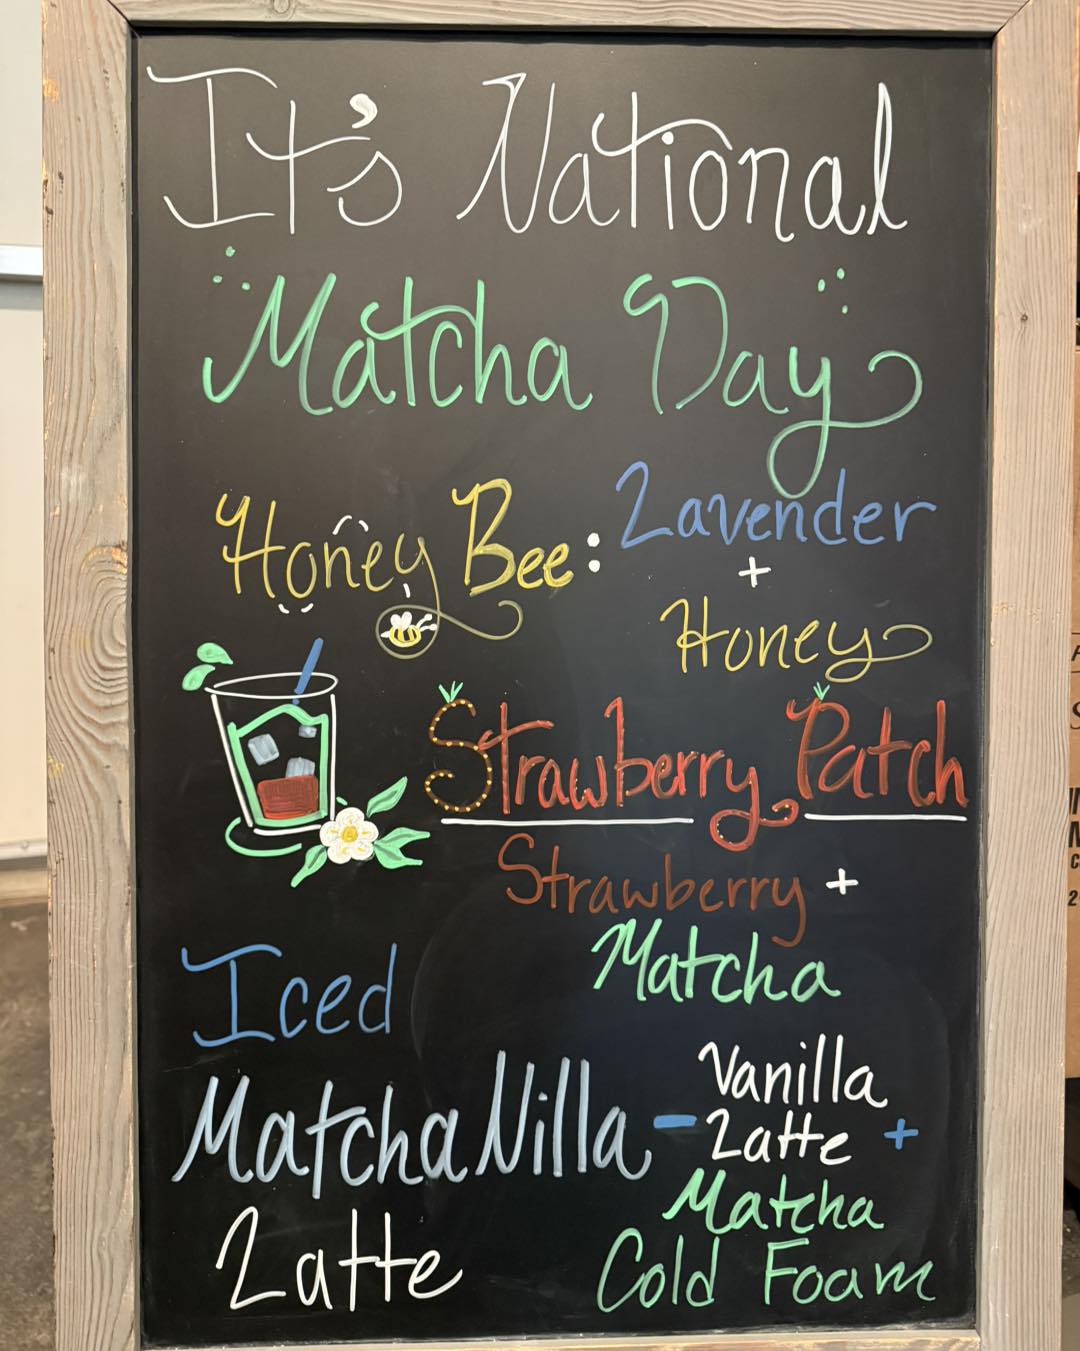 It's National
Matcha Day
Honey Bee: Lavender
+
Honey
Strawberry Patch
Strawberry +
Matcha
Iced
MatchaNilla - Vanilla
Latte +
Matcha
Latte Cold Foam